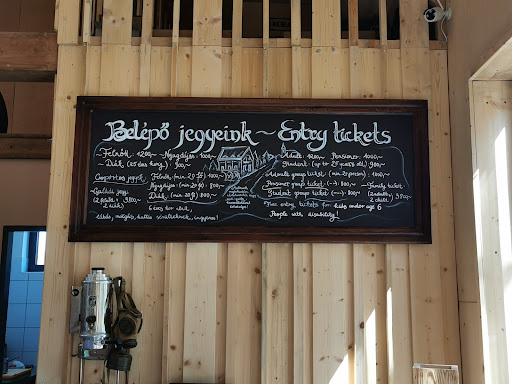 Belépő jegyeink ~ Entry tickets
~ Felnőtt: 1200,~ ~ Nyugdíjas: 1000,~
~ Diák: (25 éves korig): 900,~
Csoportos jegyek: Felnőtt: (min 20 fő)
Nyugdíjas: (min 20 fő): 900,~
Diák: (min 20 fő) 800,~
~ Családi jegy:
(2 felnőtt, 2 diák) 3800,~
6 éves kor alatt,
~ Adult: 1200,~ Pensioner: 1000,~
~ Student: (up to 25 years old) 900,~
~ Adult group ticket (min 20 person) 1000,~
Pensioner group ticket (~) 900,~
Student group ticket (~) 800,~
~ Family ticket
(2 adults, 2 child) 3800,~
Free entry tickets for kids under age 6
People with disability!